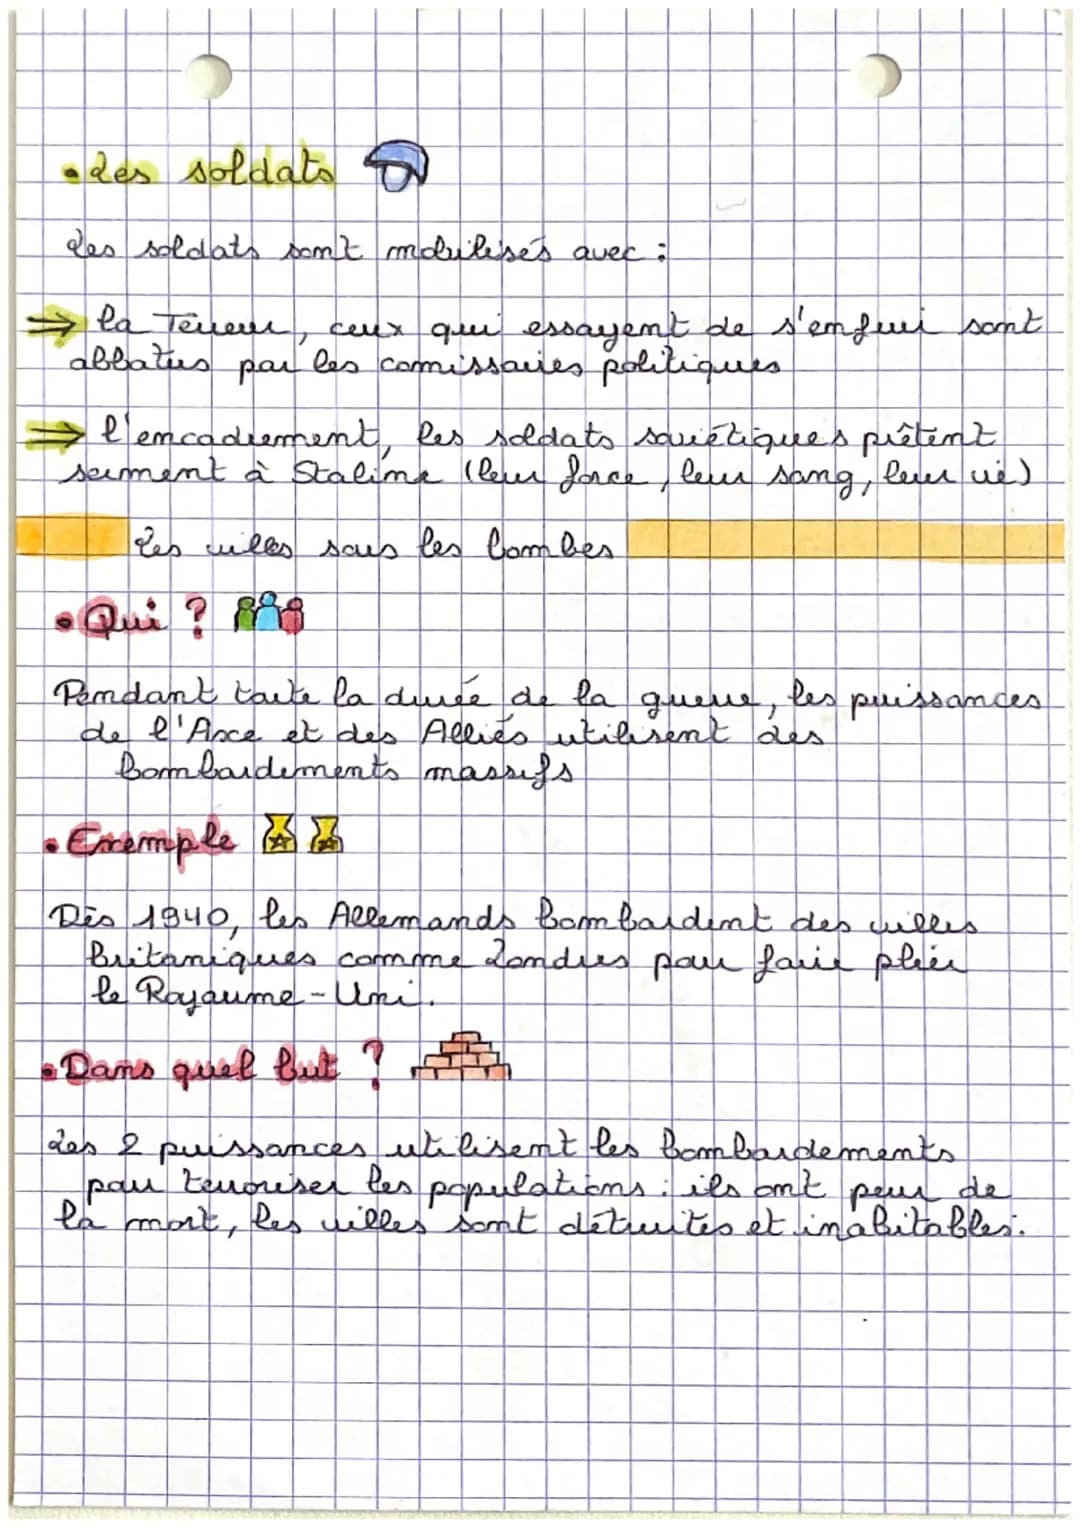 • Les soldats
Les soldats sont mobilisés avec :
⇒ la Terreur, ceux qui essayent de s'enfuir sont
abbatus par les comissaires politiques
⇒ l'encadrement, les soldats soviétiques prêtent
serment à Staline (leur force, leur sang, leur vie)
Les villes sous les bombes
• Qui ?
Pendant toute la durée de la guerre, les puissances
de l'Axe et des Alliés utilisent des
bombardements massifs
• Exemple
Dès 1940, les Allemands bombardent des villes
britaniques comme Londres pour faire plier
le Royaume-Uni.
• Dans quel but ?
Les 2 puissances utilisent les bombardements
pour terroriser les populations : ils ont peur de
la mort, les villes sont détruites et inabitables.